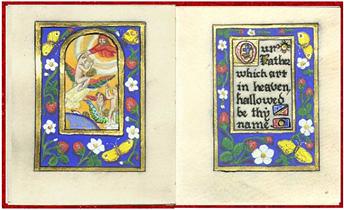 Our
Father
which art
in heaven,
hallowed
be thy
name